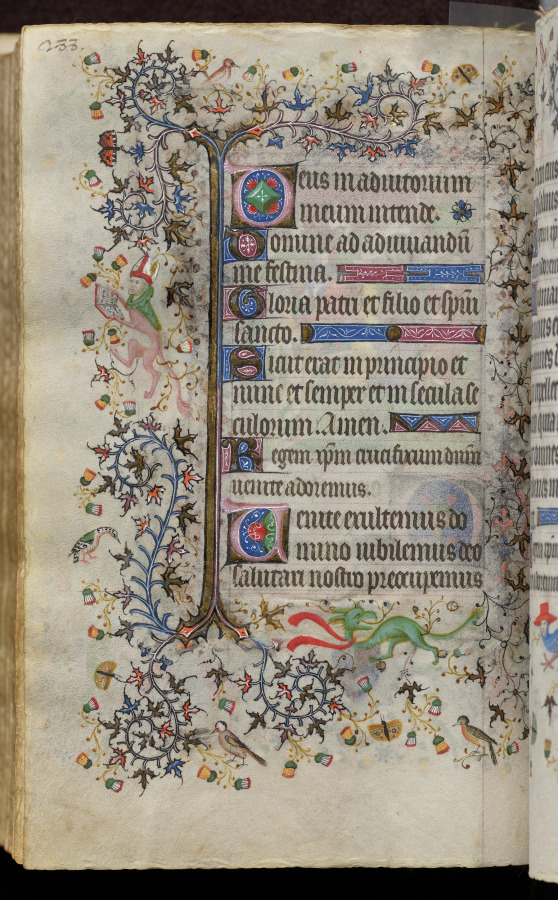 233.
Deus in adiutorium
meum intende.
Domine ad adiuuandū
me festina.
Gloria patri et filio et spūi
sancto.
Sicut erat in principio et
nunc et semper et in secula se
culorum. Amen.
Regem xp̄m crucifixum dnūm
uenite adoremus.
Uenite exultemus do
mino iubilemus deo
salutari nostro preocupemus